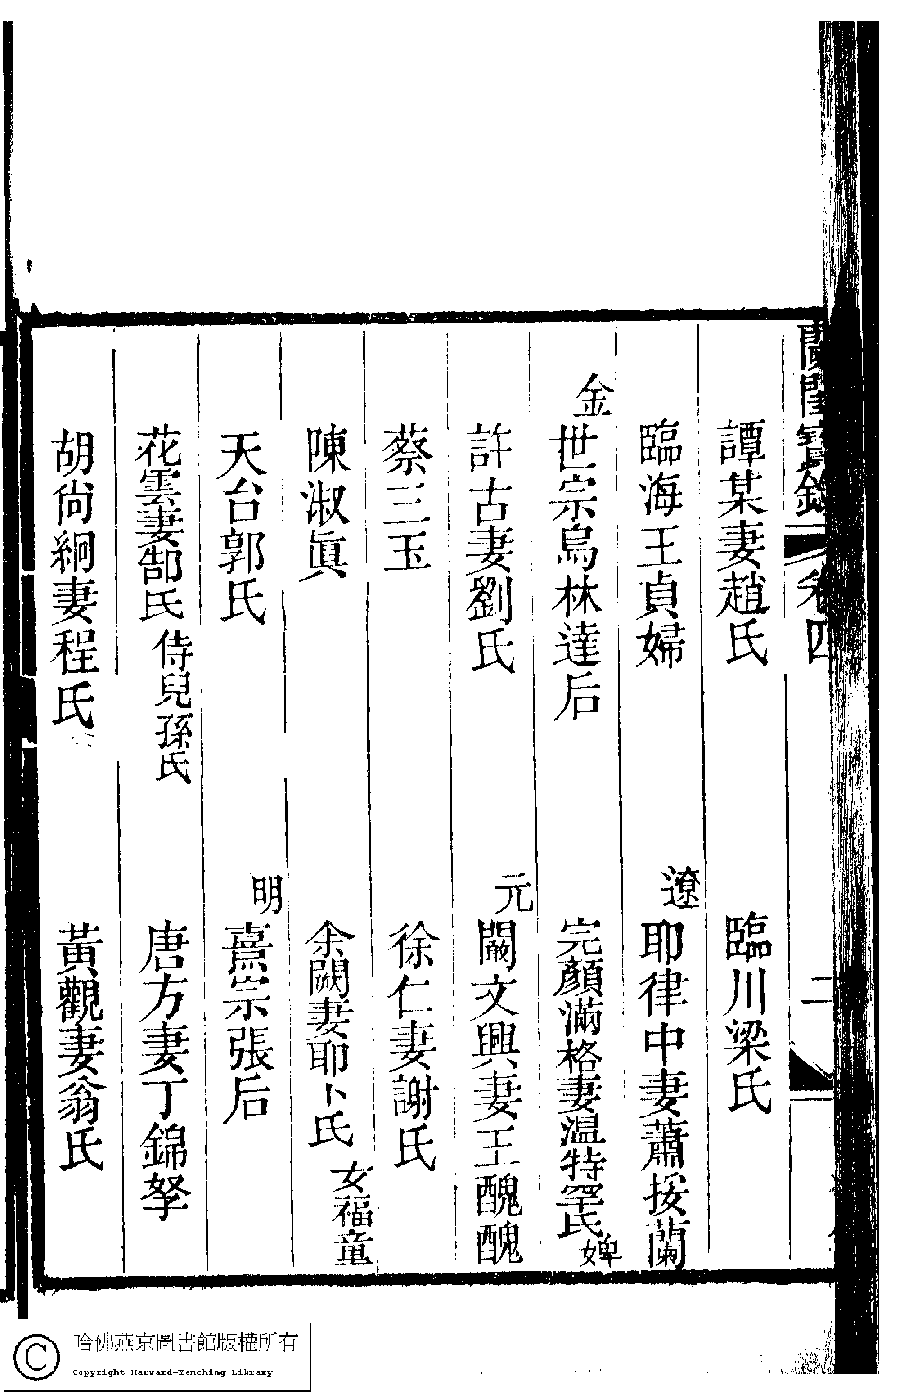 蘭閨寶錄 卷四 二
譚某妻趙氏 臨川梁氏
臨海王貞婦 遼 耶律中妻蕭挼蘭
金 世宗烏林達后 完顏滿格妻溫特罕氏 婢
許古妻劉氏 元 闞文興妻王醜醜
蔡三玉 徐仁妻謝氏
陳淑眞 余闕妻耶卜氏 女福童
天台郭氏 明 熹宗張后
花雲妻郜氏 侍兒孫氏 唐方妻丁錦孥
胡尙絅妻程氏 黃觀妻翁氏
哈佛燕京圖書館版權所有
Copyright Harvard-Yenching Library